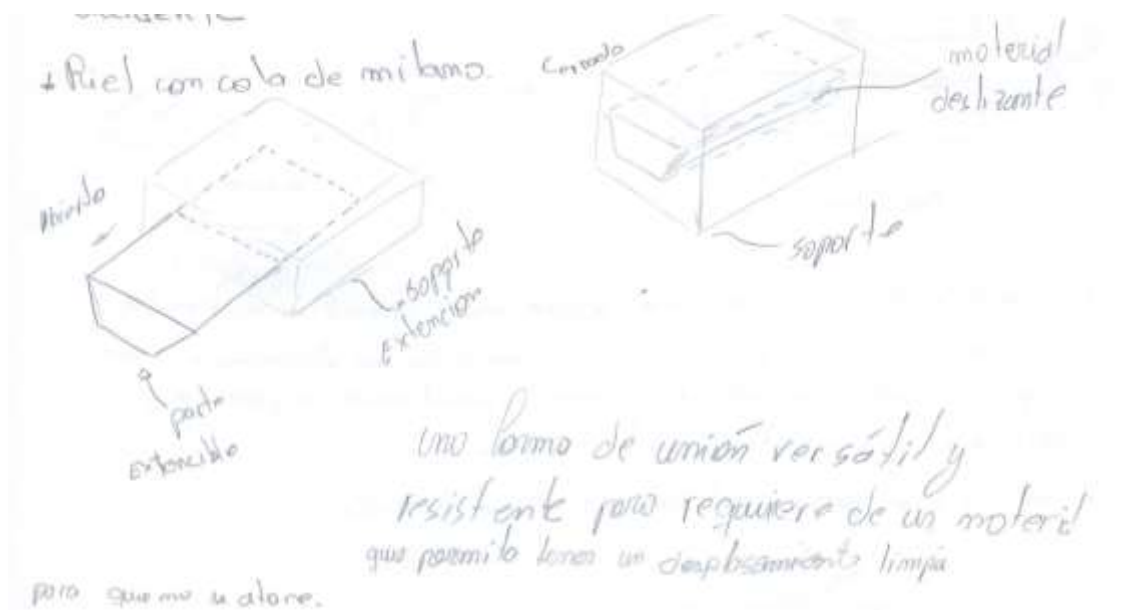 * Riel con cola de milano.
Cerrado
material
deslizante
Abierto
soporte
soporte
Extencion
parte
extencible
una forma de unión versátil y
resistente pero requiere de un materil
que permita tener un desplasamiento limpia
para que no se atore.